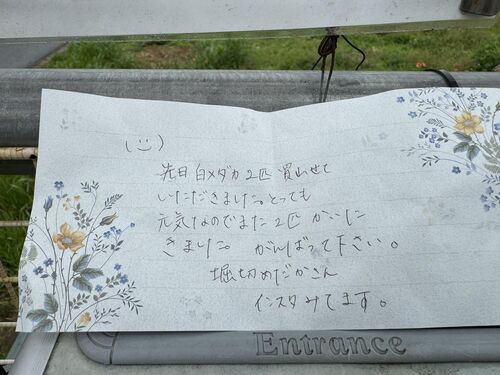 (☺)
先日 白メダカ 2匹 買わせて
いただきました。とっても
元気なのでまた 2匹 かいに
きました。 がんばって下さい。
堀切めだかさん
インスタみてます。
Entrance